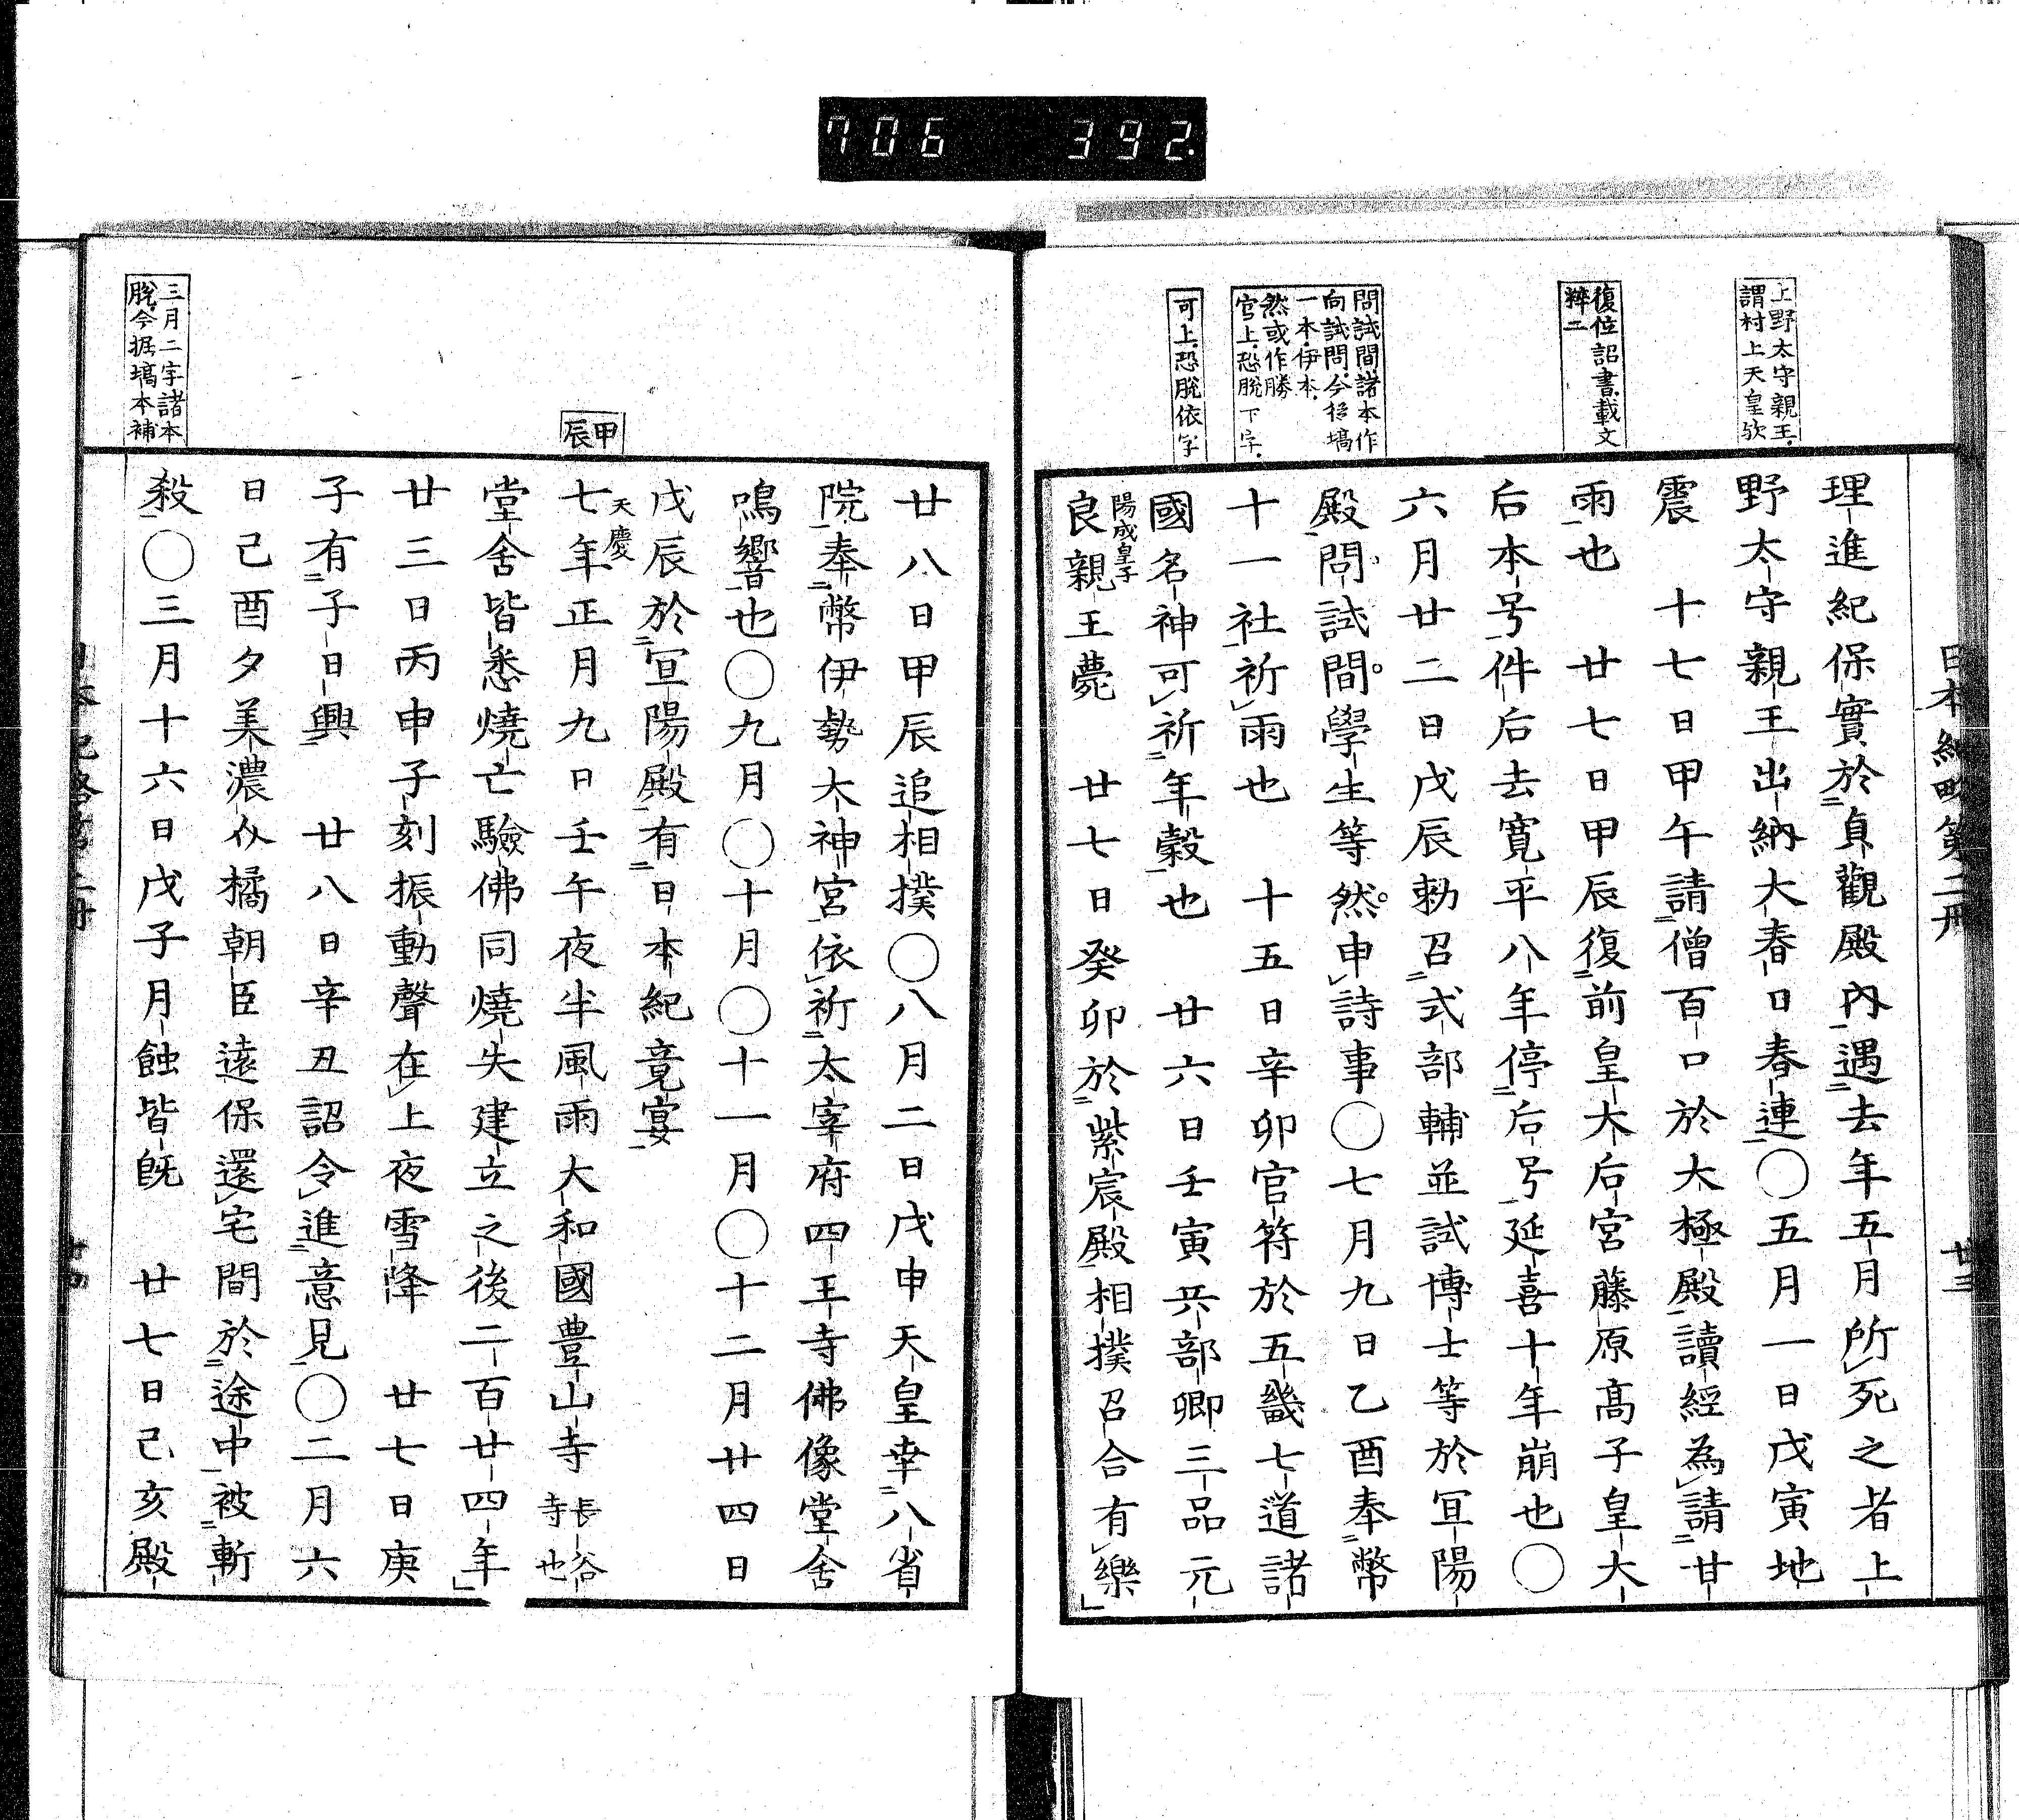 706 392.
日本紀略第二册 廿三
上野太守親王.
謂村上天皇欤
復位詔書.載文
粹二
問試間諸本作
向試問.今据塙
一本.伊本.
然或作勝
官上.恐脫下字.
可上.恐脫依字
理進紀保實於貞觀殿內遇去年五月所死之者上
野太守親王出納大春日春連〇五月一日戊寅地
震 十七日甲午請僧百口於大極殿讀經為請甘
雨也 廿七日甲辰復前皇大后宮藤原高子皇大
后本号件后去寛平八年停后号延喜十年崩也〇
六月廿二日戊辰勅召式部輔並試博士等於宣陽
殿問試間學生等然申詩事〇七月九日乙酉奉幣
十一社祈雨也 十五日辛卯官符於五畿七道諸
國名神可祈年穀也 廿六日壬寅兵部卿三品元
陽成皇子
良親王薨 廿七日癸卯於紫宸殿相撲召合有樂
廿八日甲辰追相撲〇八月二日戊申天皇幸八省
院奉幣伊勢大神宮依祈太宰府四王寺佛像堂舍
鳴響也〇九月〇十月〇十一月〇十二月廿四日
戊辰於宣陽殿有日本紀竟宴
甲辰
天慶
七年正月九日壬午夜半風雨大和國豊山寺 長谷寺也
堂舍皆悉燒亡驗佛同燒失建立之後二百廿四年
廿三日丙申子刻振動聲在上夜雪降 廿七日庚
子有子日興 廿八日辛丑詔令進意見〇二月六
日己酉夕美濃介橘朝臣遠保還宅間於途中被斬
三月二字諸本
脫今据塙本補
殺〇三月十六日戊子月蝕皆既 廿七日己亥殿